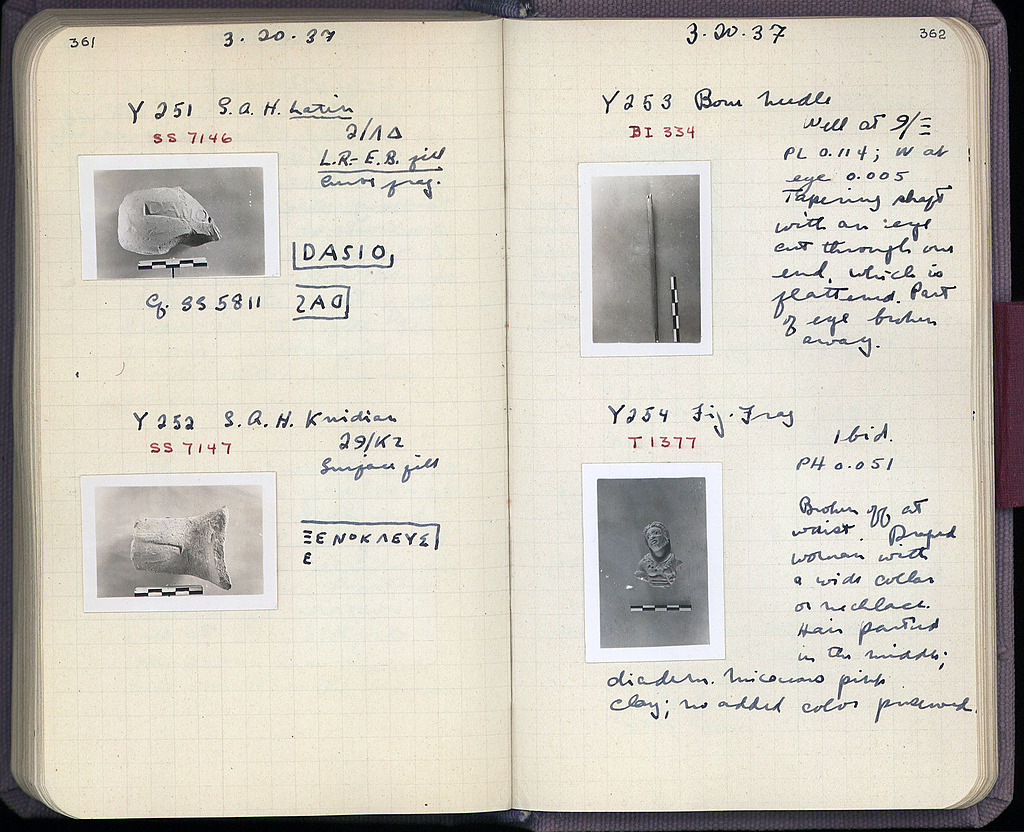 361
3·20·37
Y 251 S.A.H. Latin
SS 7146
2/ΛΔ
L.R.-E.B. fill
Curve frag.
DASIO
Cf. SS 5811 ƧAD
Y 252 S.A.H. Knidian
SS 7147
29/ΚΖ
Surface fill
ΞΕΝΟΚΛΕΥΣ
Ε
3·20·37
362
Y 253 Bone needle
BI 334
Well at 9/Ξ
PL 0.114; W at
eye 0.005
Tapering shaft
with an eye
cut through one
end, which is
flattened. Part
of eye broken
away.
Y 254 Fig. Frag
T 1377
Ibid.
PH 0.051
Broken off at
waist. Draped
woman with
a wide collar
or necklace.
Hair parted
in the middle;
diadem. Micaceous pink
clay; no added color preserved.